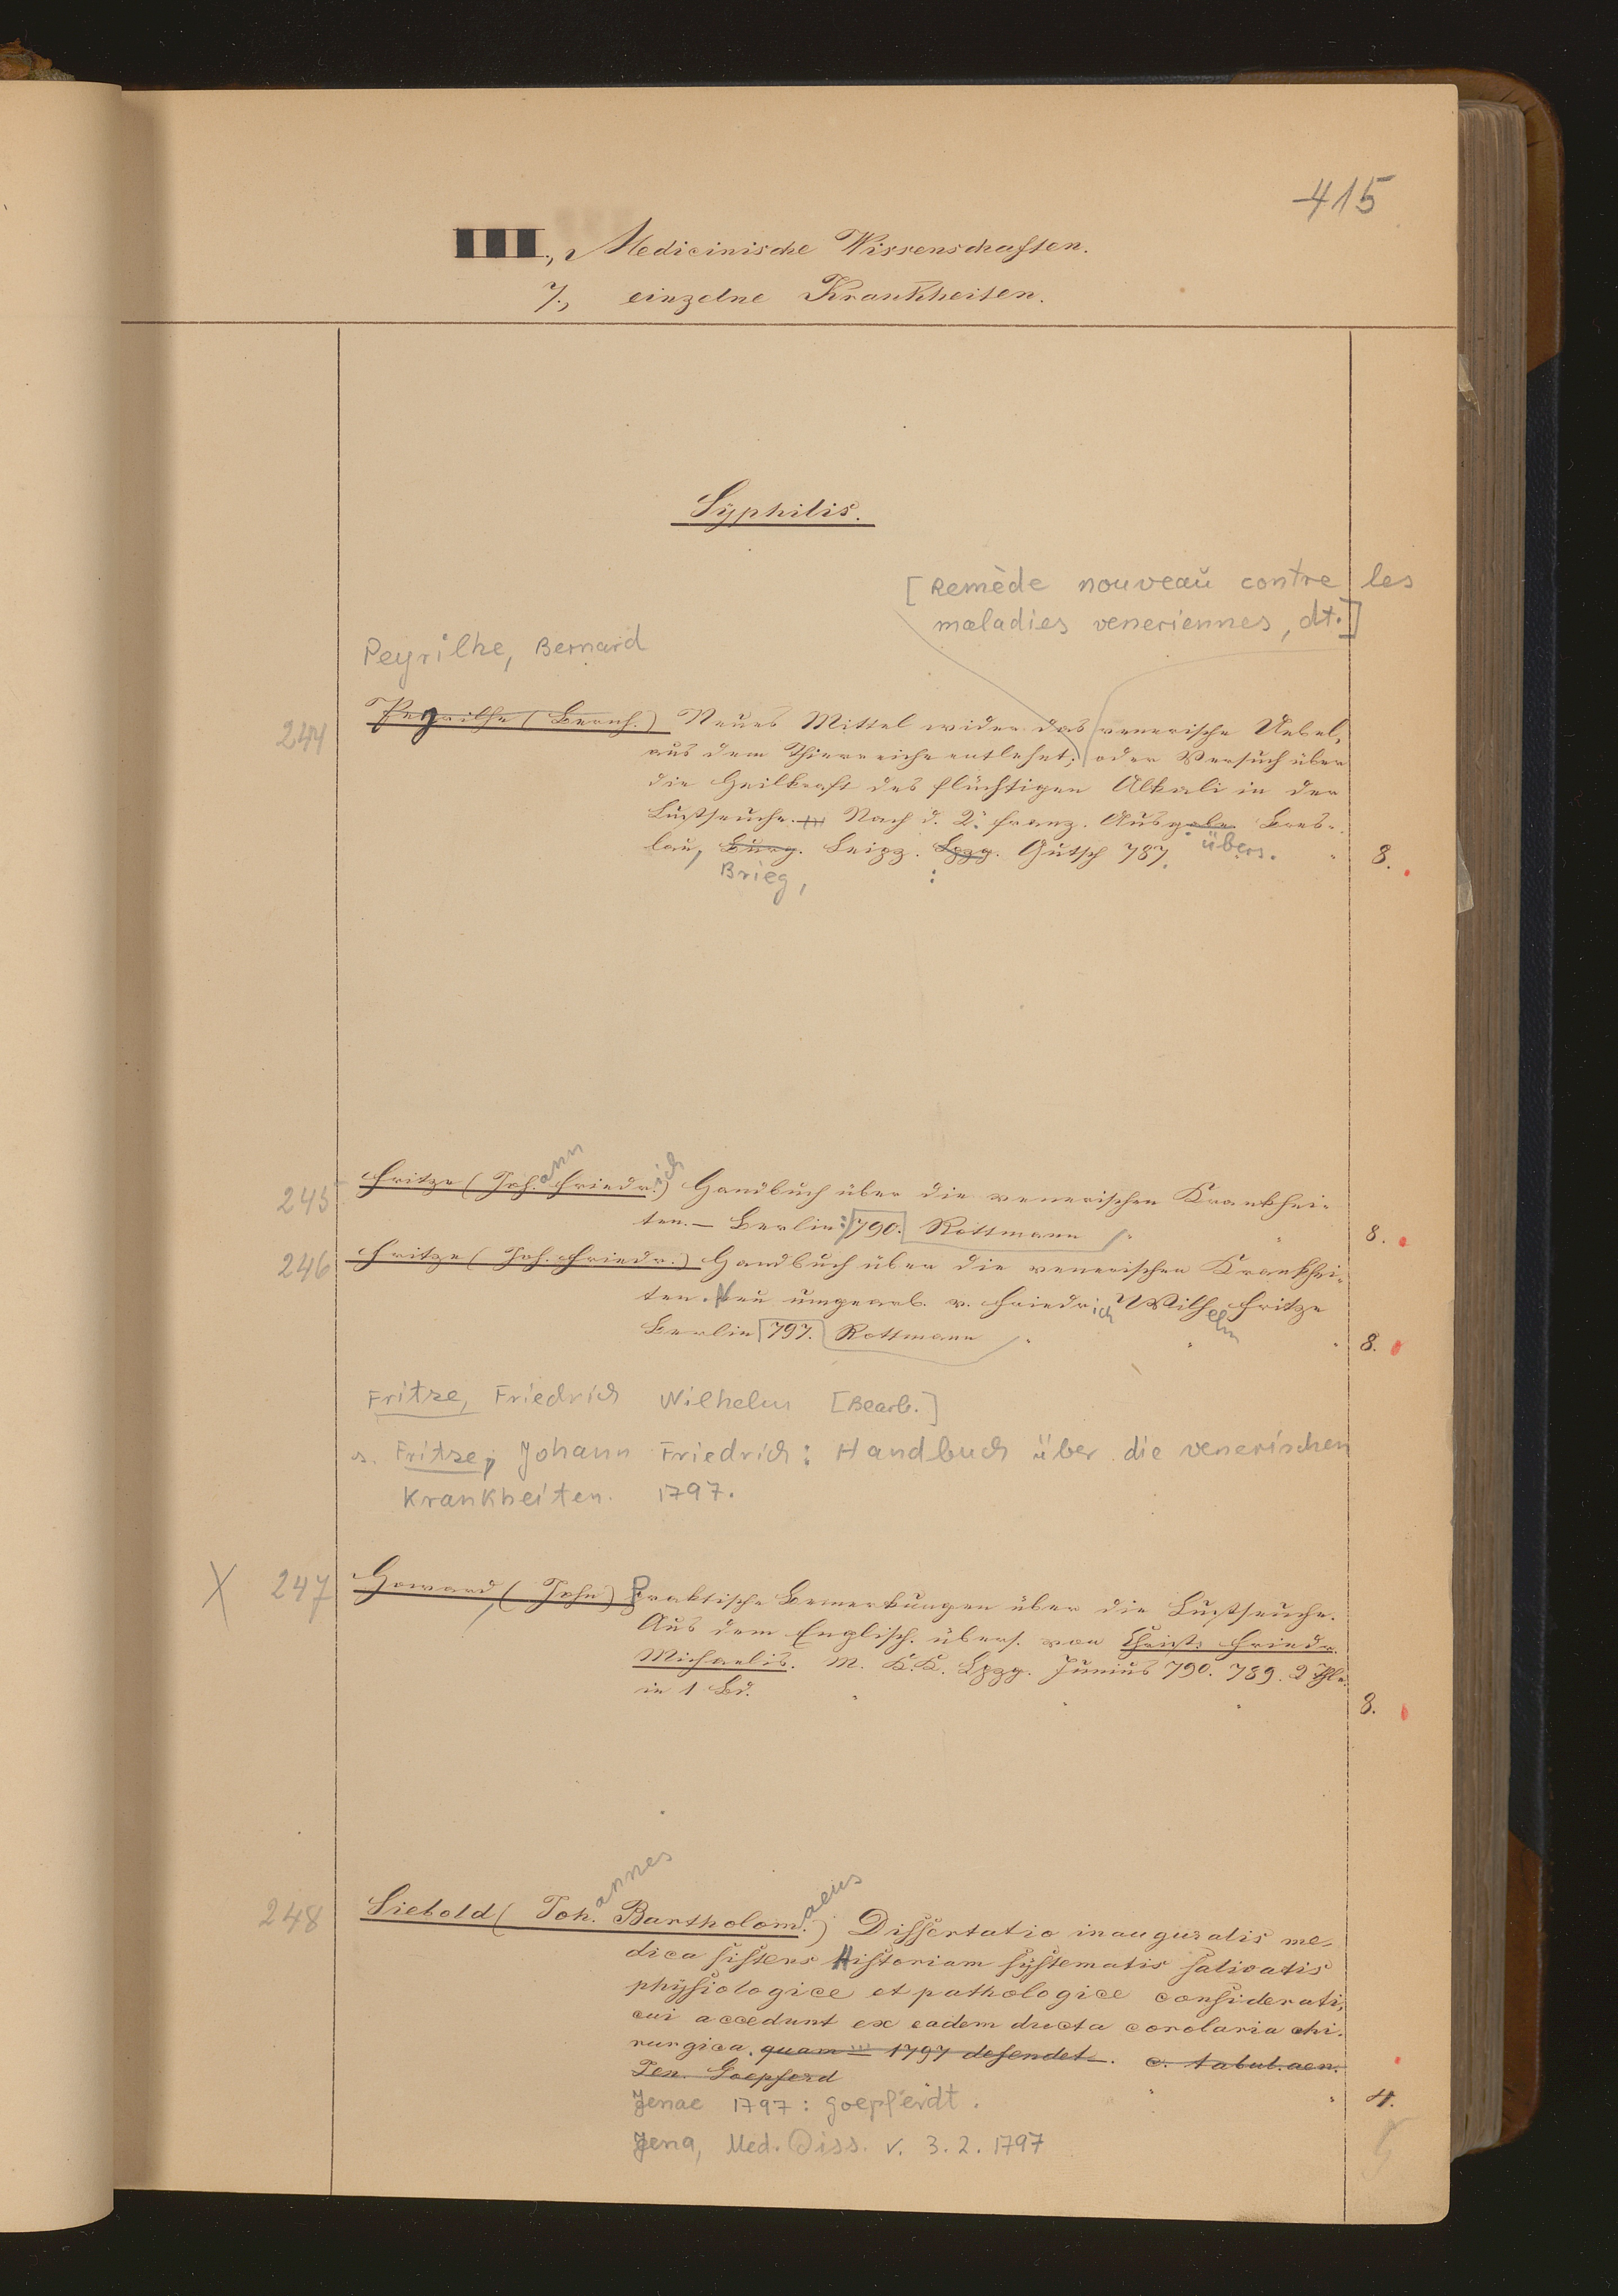 415
III., Medicinische Wissenschaften.
7., einzelne Krankheiten.
Syphilis.
[Remède nouveau contre les
maladies veneriennes, dt.]
Peyrilhe, Bernard
244 Peyrilhe (Bernh.) Neues Mittel wider das venerische Uebel,
aus dem Thierreiche entlehnt; oder Versuch über
die Heilkraft des flüchtigen Alkali in der
Lustseuche. Nach d. 2. franz. Ausgabe Bres-
übers.
lau, Burg. Leipz. Lpzg. Gutsch 787. 8.
Brieg, :
245 Fritze (Johann Friedrich) Handbuch über die venerischen Krankhei-
ten. – Berlin: 790. Rottmann 8.
246 Fritze (Joh. Friedr.) Handbuch über die venerischen Krankhei-
ten. Neu umgearb. v. Friedrich Wilhelm Fritze
Berlin 797. Rottmann 8.
Fritze, Friedrich Wilhelm [Bearb.]
s. Fritze, Johann Friedrich: Handbuch über die venerischen
Krankheiten. 1797.
X 247 Howard, (John) Praktische Bemerkungen über die Lustseuche.
Aus dem Englisch. übers. von Christ. Friedr.
Michaelis. M. K.K. Lpzg. Junius 790. 789. 2 Thle.
in 1 Bd. 8.
248 Siebold (Johannes Bartholomaeus) Dissertatio inauguralis me-
dica sistens Historiam systematis salivatis
physiologice et pathologice considerati,
cui accedunt ex eadem ducta corolaria chi-
rurgica. quam 1797 defendet. c. tabul. aen.
Jen. Goepferd
Jenae 1797: Goepferdt. 4.
Jena, Med. Diss. v. 3.2.1797